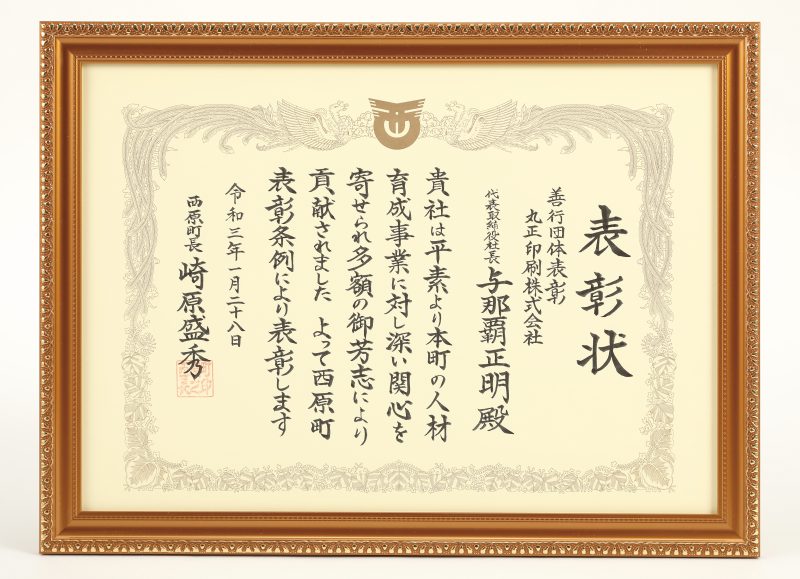 表彰状
善行団体表彰
丸正印刷株式会社
代表取締役社長 与那覇正明 殿
貴社は平素より本町の人材
育成事業に対し深い関心を
寄せられ多額の御芳志により
貢献されました よって西原町
表彰条例により表彰します
令和三年一月二十八日
西原町長 崎原盛秀